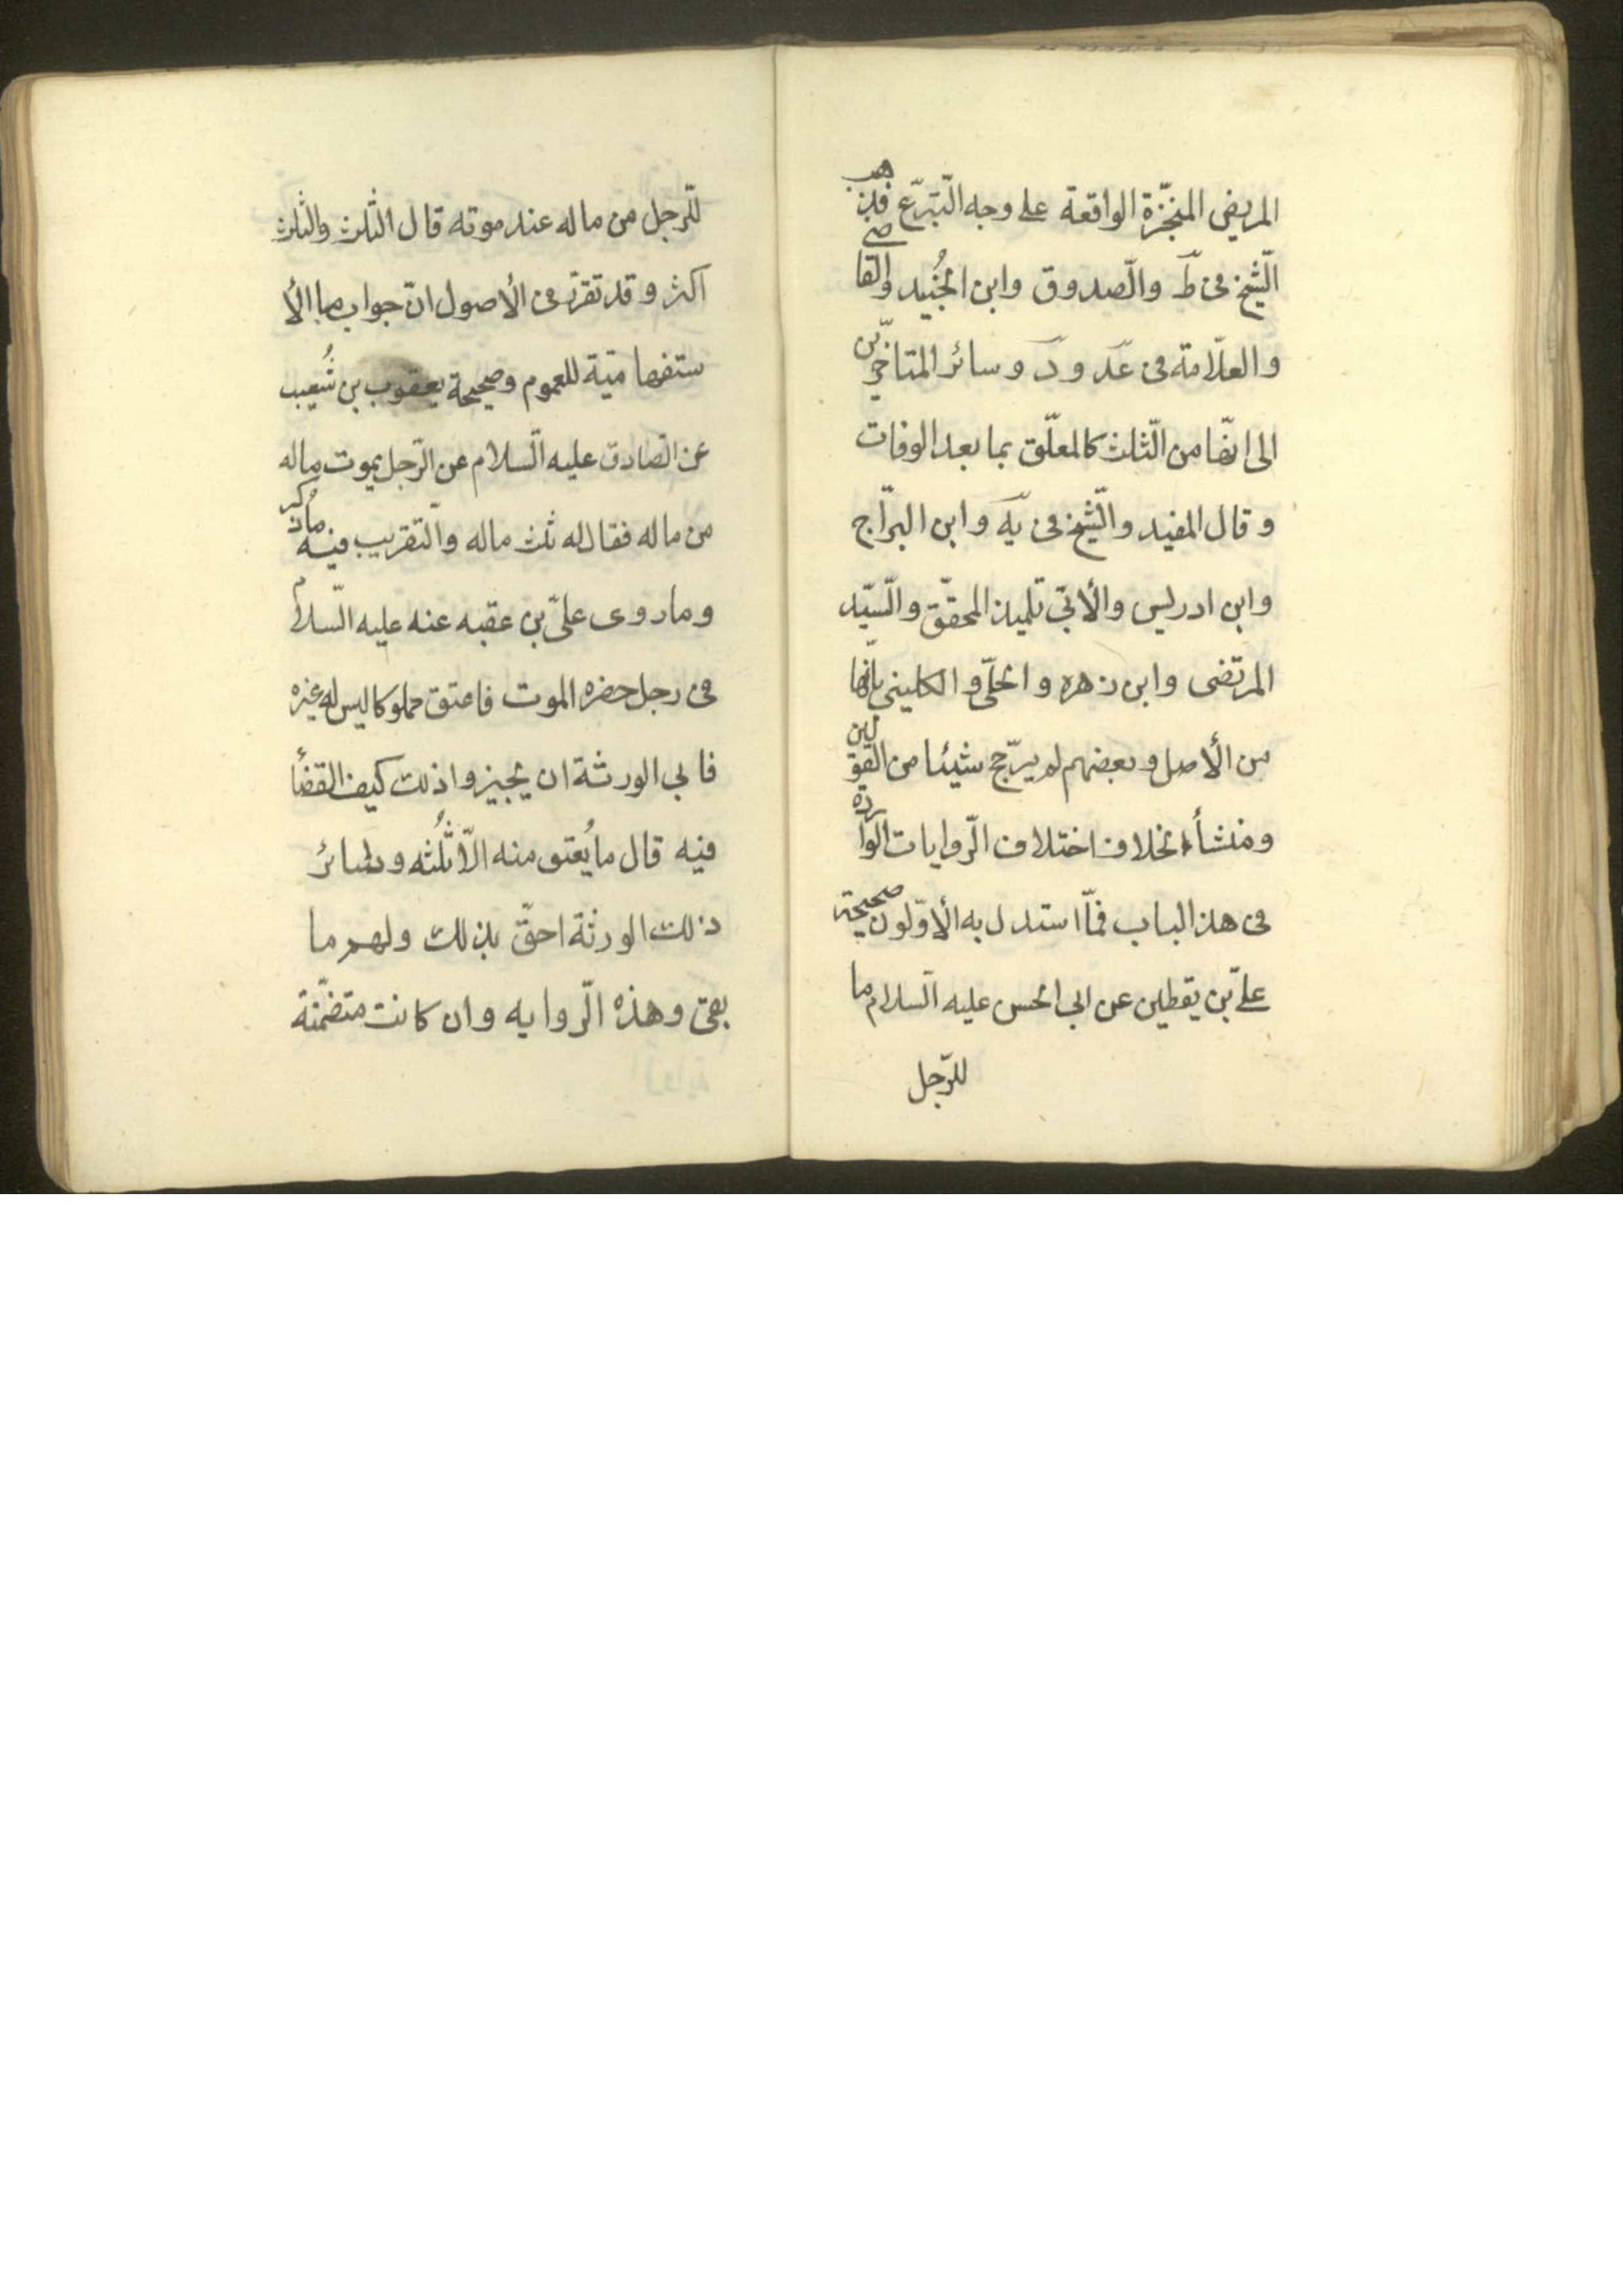 المريض المنجّزة الواقعة على وجه التّبرّع فذهب
الشّيخ فى طَ والصّدوق وابن الجُنيد والقاضى
والعلّامة فى عَد ودَ وسائر المتاخّرين
الى انّها من الثّلث كالمعلّق بما بعد الوفات
وقال المفيد والشّيخ فى يَه وابن البرّاج
وابن ادريس والأبىّ تلميذ المحقّق والسّيّد
المرتضى وابن زهره والحلّى و الكلينى بانّها
من الأصل وبعضهم لم يرجّح شيئا من القولين
ومنشأ الخلاف اختلاف الرّوايات الواردة
فى هذ الباب فمّا استدل به الأوّلون صحيحة
علىّ بن يقطين عن ابى الحسن عليه السّلام ما
للرّجل
للرّجل من ماله عند موته قال الثّلث والثلث
اكثر وقد تقرّر فى الأصول انّ جواب ما الأ
ستفهاميّة للعموم وصحيحة يعقوب بن شُعيب
عن الصّادق عليه السّلام عن الرّجل يموت ماله
من ماله فقال له ثلث ماله والتّقريب فيه ماذُكر
وما روى علىّ بن عقبه عنه عليه السّلام
فى رجل حضره الموت فاعتق مملوكا ليس له غيره
فابى الورثة ان يجيزوا ذلك كيف القضأ
فيه قال ما يُعتق منه الّا ثُلُثه وسائر
ذلك الورثة احقّ بذلك ولهم ما
بقى وهذه الرّوايه وان كانت متضمّنة